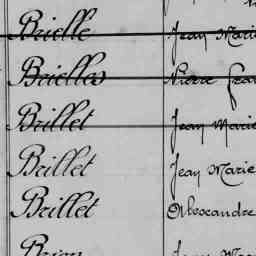 Brielle Jean Marie
Brielles Pierre
Brillet Jean Marie
Brillet Jean Marie
Brillet Alexandre